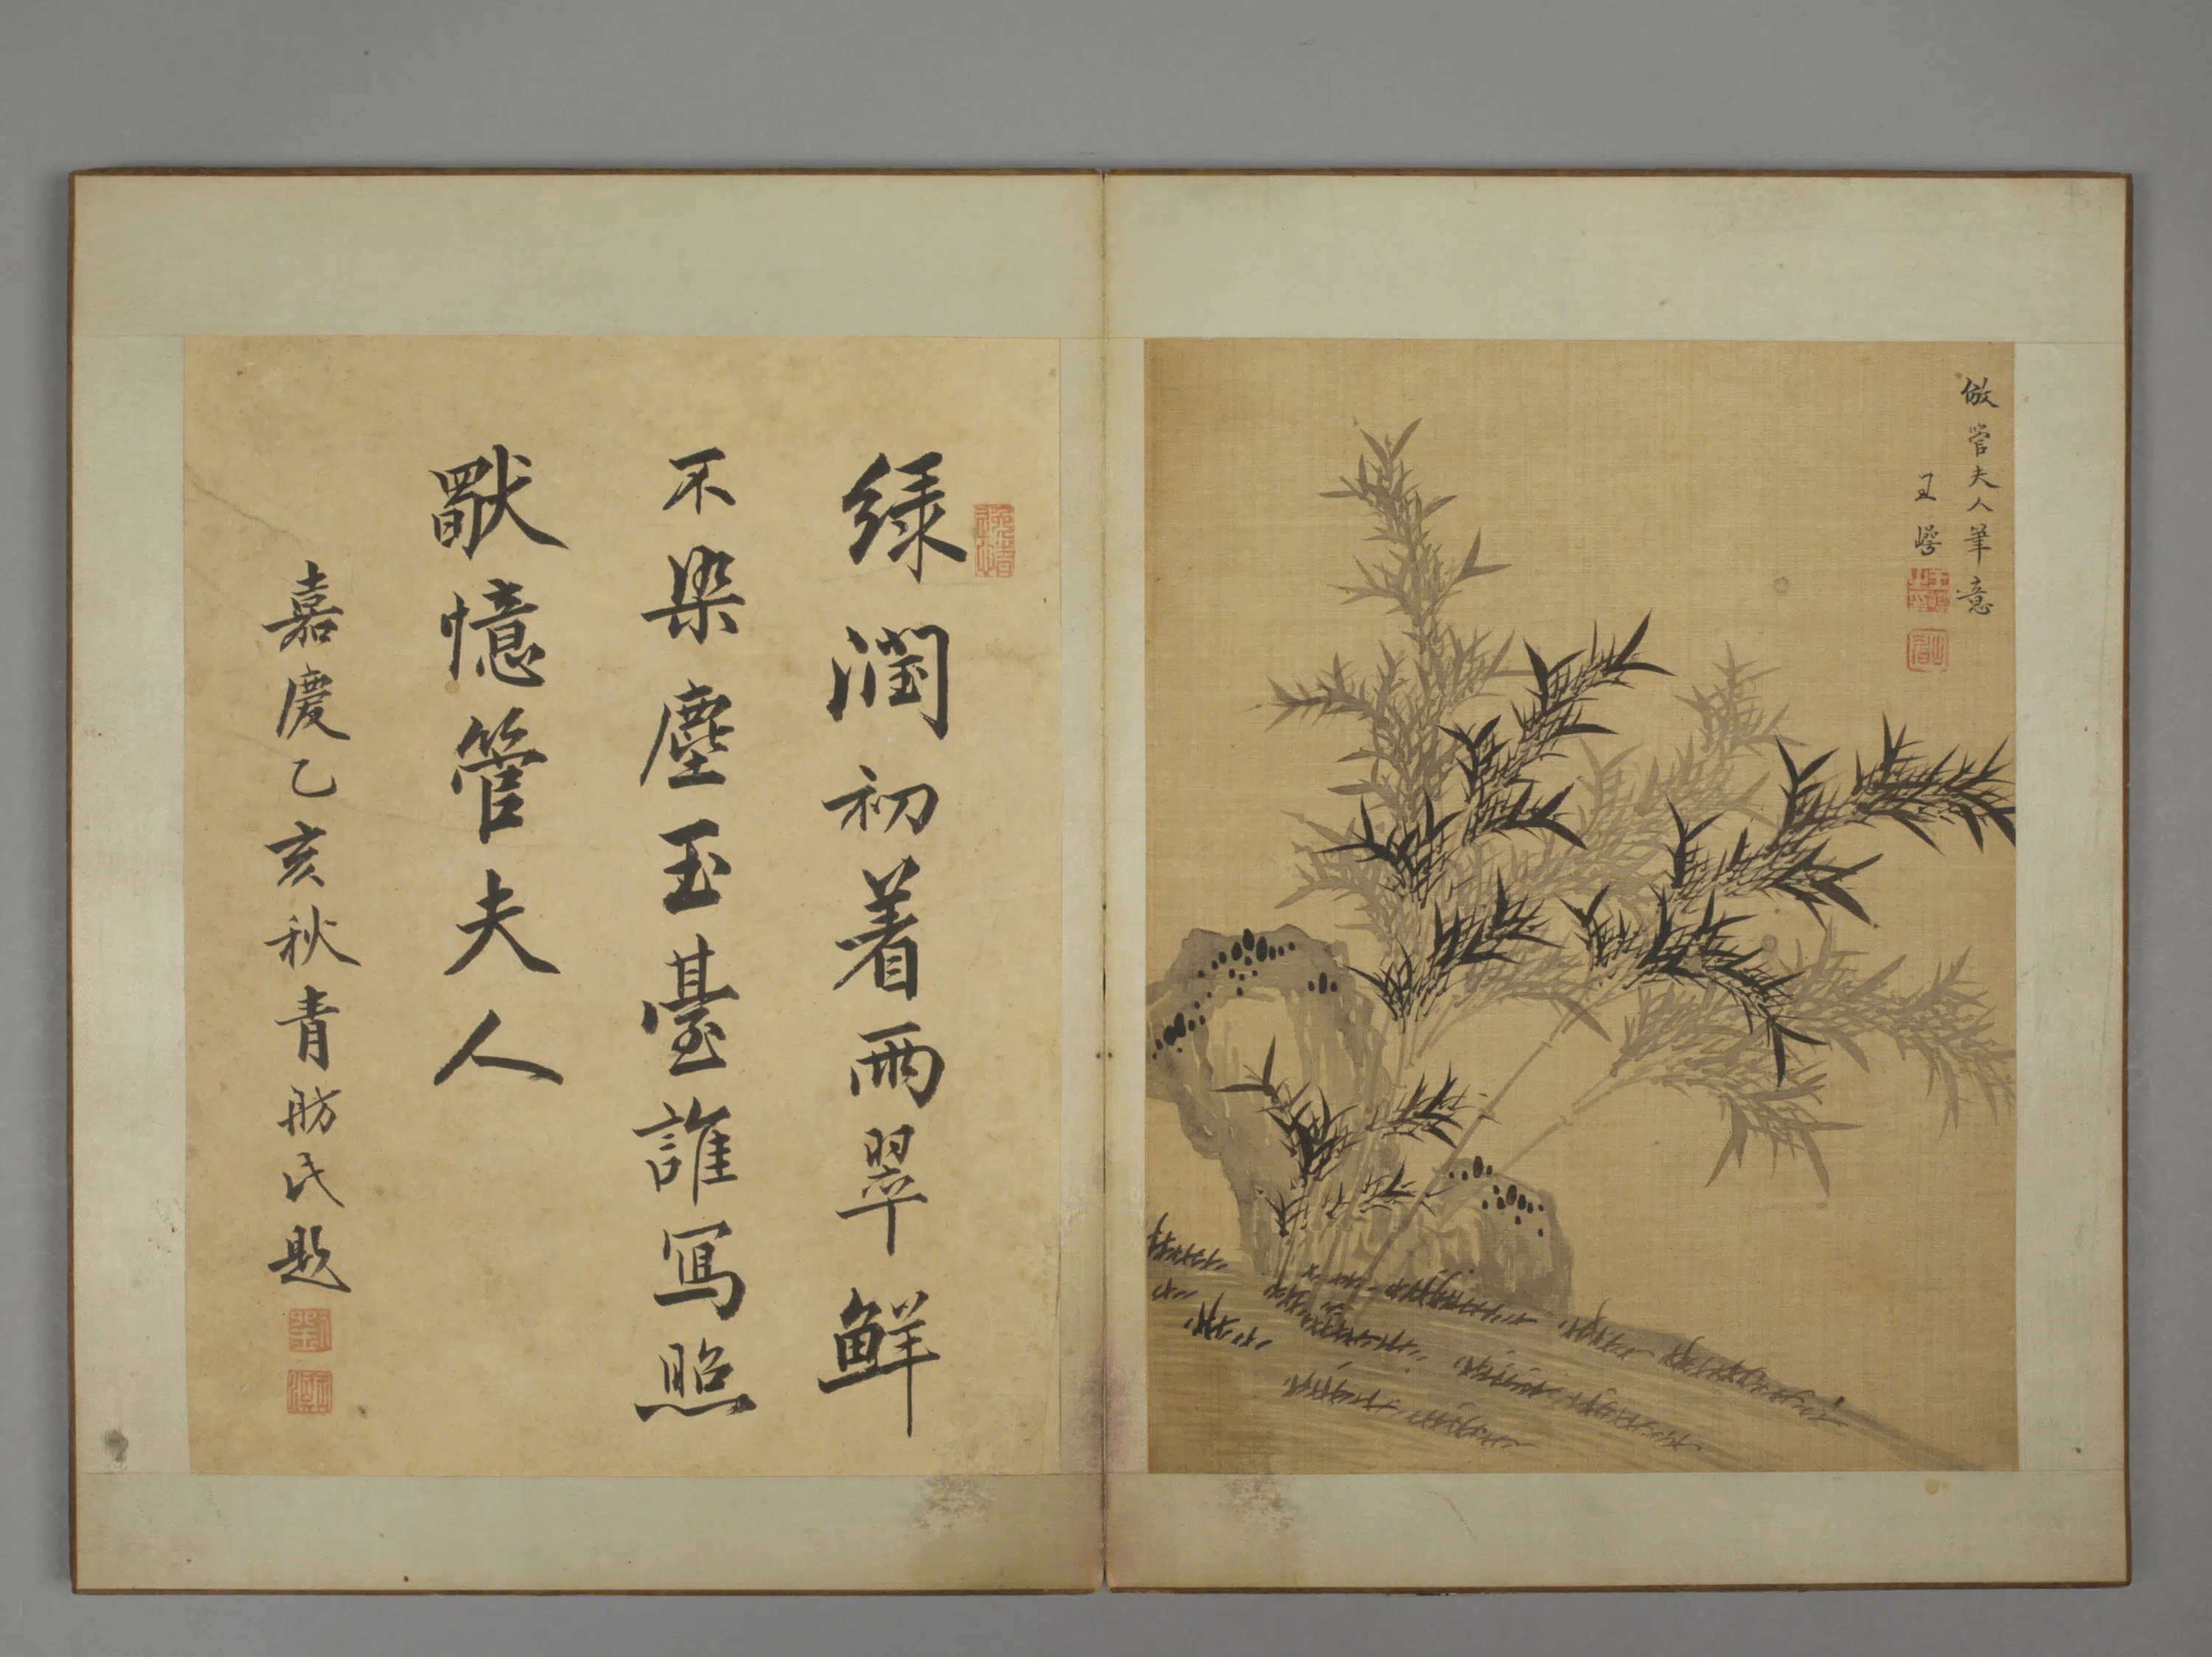 倣管夫人筆意
王崿
綠潤初着雨翠鮮
不染塵玉臺誰寫照
猒憶管夫人
嘉慶乙亥秋青舫氏題